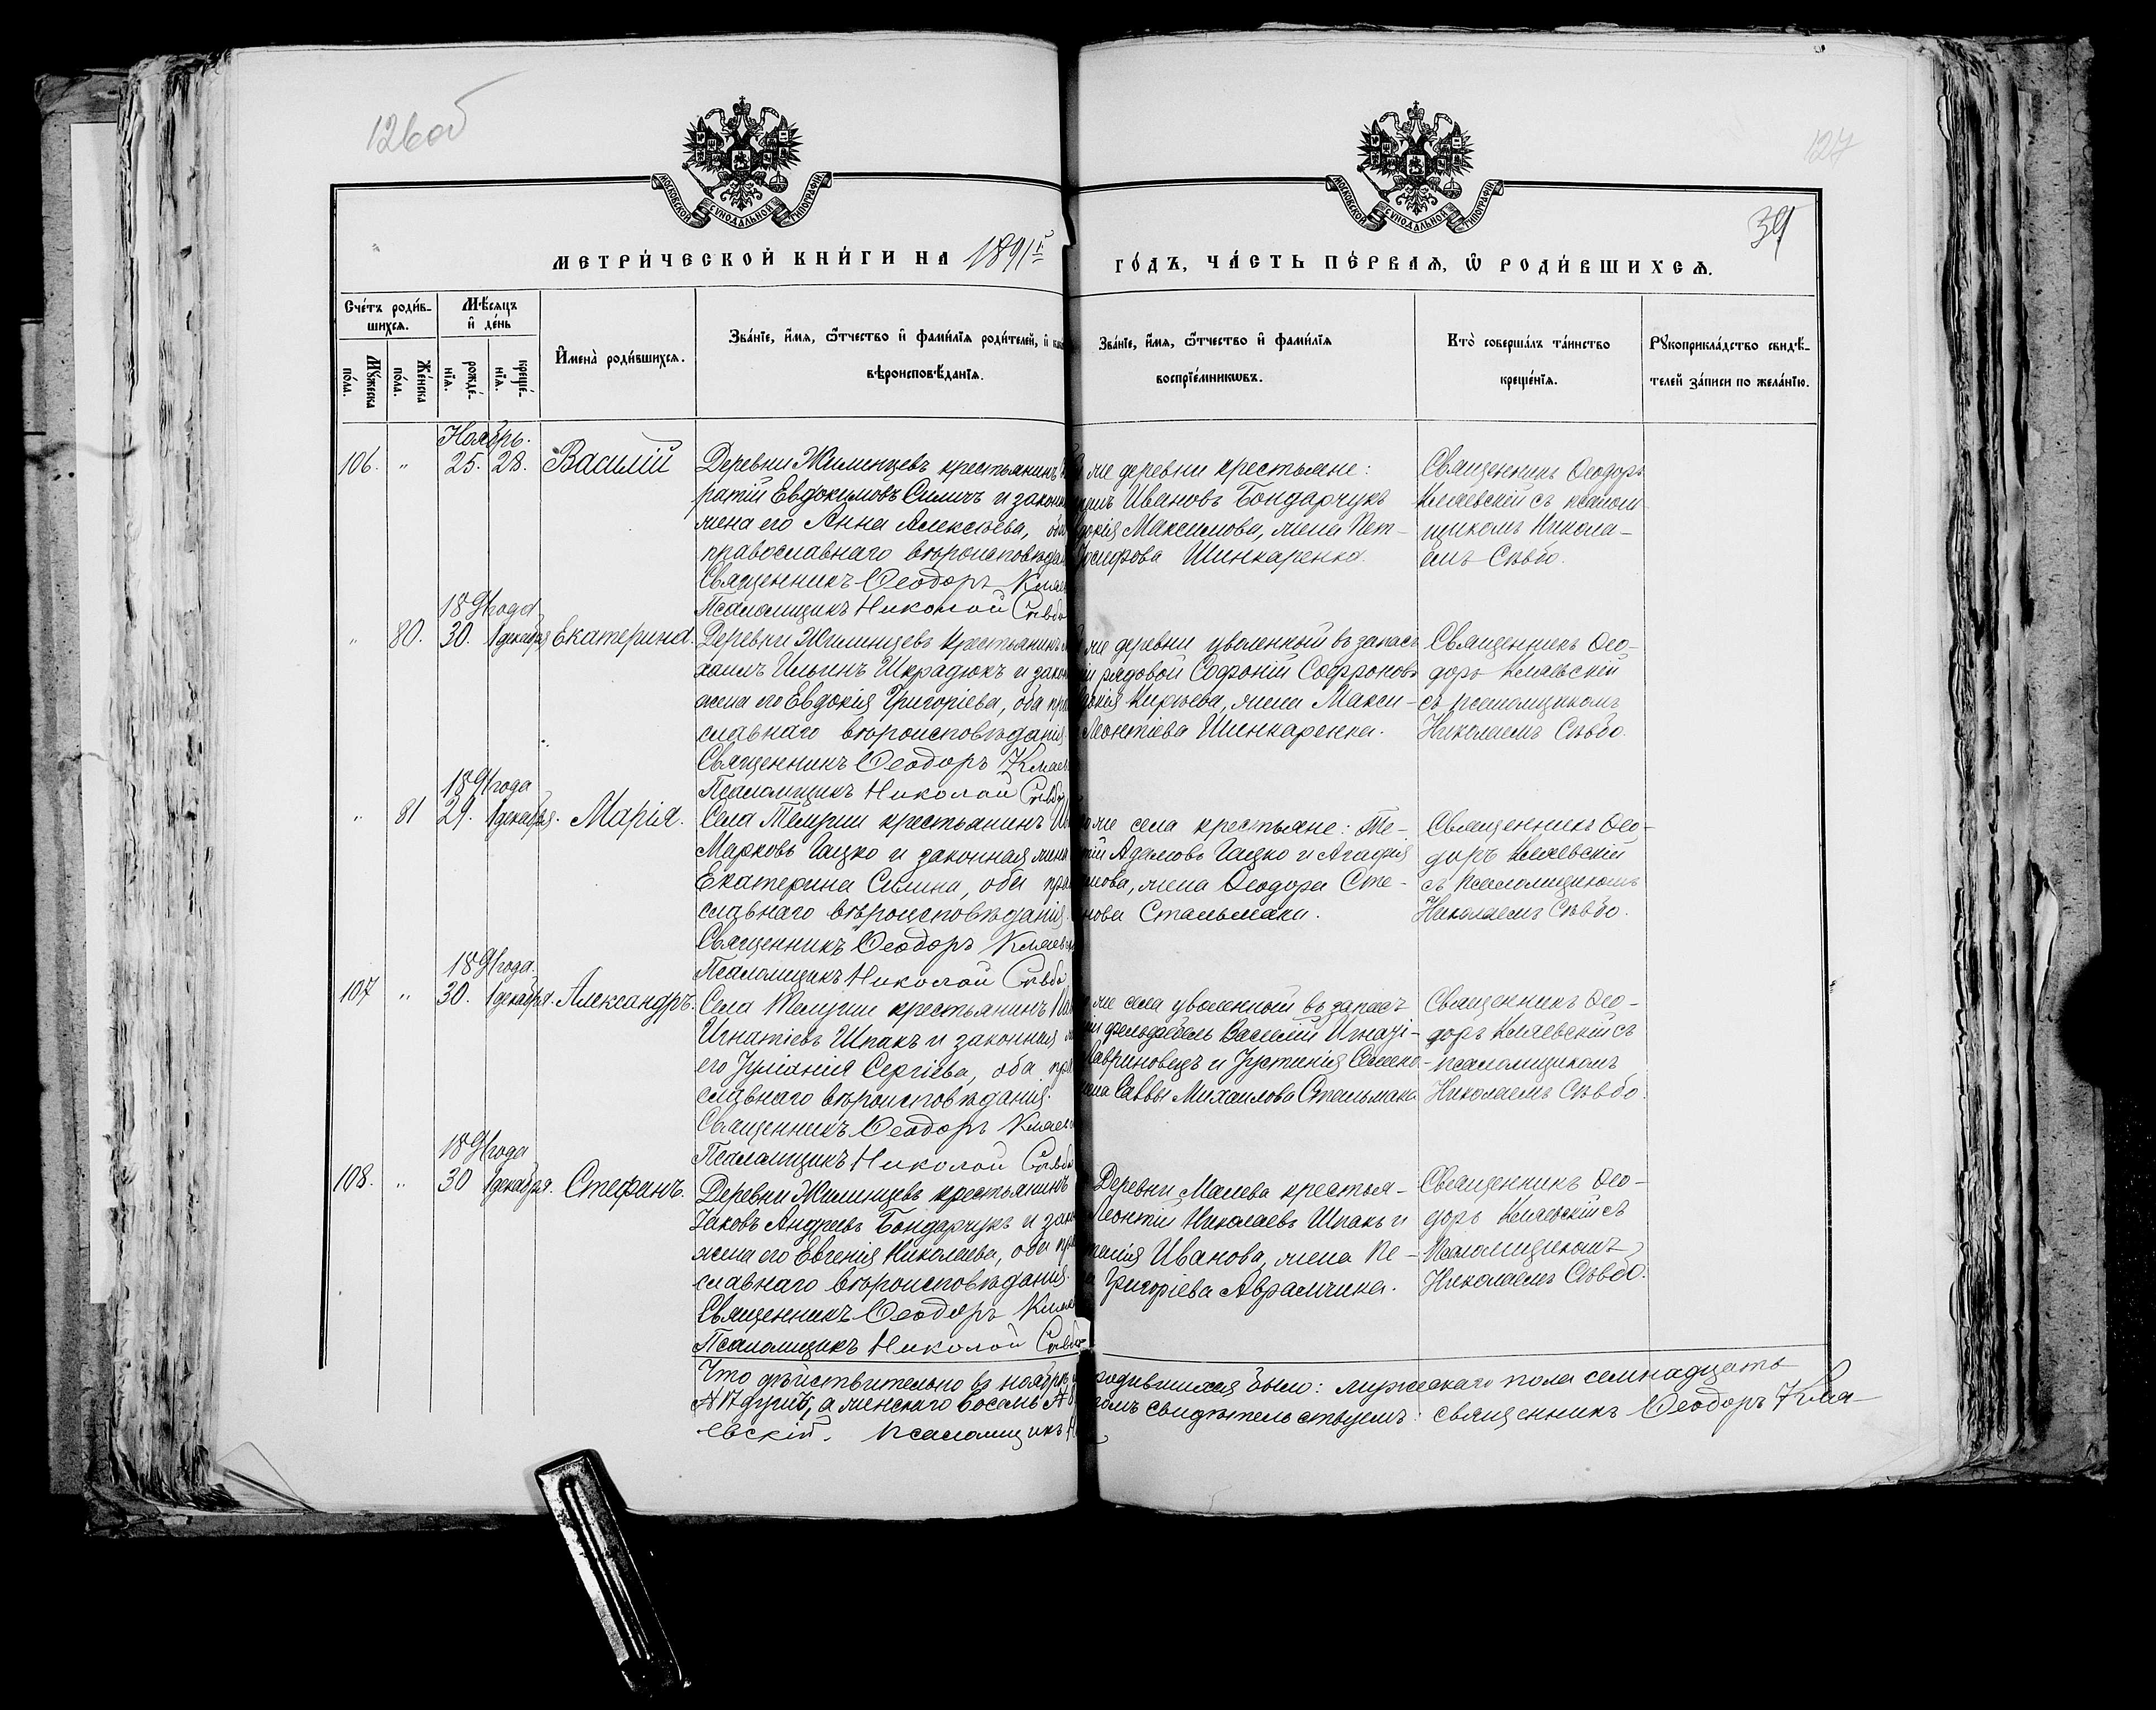 126 об
127
39
МОСКОВСКОЙ СУНОДАЛЬНОЙ ТИПОГРАФІИ
МОСКОВСКОЙ СУНОДАЛЬНОЙ ТИПОГРАФІИ
МЕТРИ́ЧЕСКОЙ КНИ́ГИ НА 1891 й ГО́ДЪ, ЧА́СТЬ ПЕ́РВАЯ, Ѡ҆ РОДИ́ВШИХСЯ.
Сче́тъ роди́в-
шихся.
Мꙋ́жеска по́ла.
Же́нска по́ла.
Мѣ́сяцъ
и҆ де́нь
рожде́-
нїя.
креще́-
нїя.
И҆мена̀ роди́вшихся.
Зва́нїе, и҆́мя, ѻ҆́тчество и҆ фами́лїя роди́телей, и҆
вѣроисповѣ́данїя.
Зва́нїе, и҆́мя, ѻ҆́тчество и҆ фами́лїя
воспрїе́мникѡвъ.
Кто̀ соверша́лъ та́инство
креще́нїя.
Рꙋкоприкла́дство свидѣ́-
телей за́писи по жела́нїю.
Ноябрь.
106. " 25. 28. Василій
Деревни Жилинцевъ крестьянинъ
ратій Евдокимовъ Силичъ и законн
жена его Анна Алексѣева, оба
православнаго вѣроисповѣдан
Священникъ Ѳеодоръ Клиаев
Псаломщикъ Николай Сѣвбо
же деревни крестьяне:
Ивановъ Бондарчукъ
Максимова, жена Пет-
Шинкаренка.
Священникъ Ѳеодоръ
съ псалом-
щикомъ Никола-
емъ Сѣвбо.
1891 года
" 80. 30. 1 декабря Екатерина.
Деревни Жилинцевъ крестьянинъ
хаилъ Ильинъ Шкрадюкъ и закон
жена его Евдокія Григоріева, оба пра
славнаго вѣроисповѣданія.
Священникъ Ѳеодоръ
Псаломщикъ Николай Сѣвбо
же деревни уволенный въ запасъ
рядовой Софоній Софроновъ
жена Макси-
Леонтіева Шинкаренка.
Священникъ Ѳео-
доръ
съ псаломщикомъ
Николаемъ Сѣвбо.
1891 года
" 81 29. 1 декабря. Марія.
Села крестьянинъ
Марковъ Гацко и законная жена
Екатерина Силина, оба пра
славнаго вѣроисповѣданія.
Священникъ Ѳеодоръ
Псаломщикъ Николай Сѣвбо
же села крестьяне: Те-
Адамовъ Гацко и Агафія
жена Ѳеодора Сте-
нова Стальмаха.
Священникъ Ѳео-
доръ
съ псаломщикомъ
Николаемъ Сѣвбо.
1891 года.
107 " 30. 1 декабря. Александръ.
Села крестьянинъ
Игнатіевъ Шпакъ и законная
его Іуліанія Сергіева, оба пра
славнаго вѣроисповѣданія.
Священникъ Ѳеодоръ
Псаломщикъ Николай Сѣвбо
же села уволенный въ запасъ
фельдфебель Василій Игнаті-
Лавриновецъ и Іустинія Семено-
жена Саввы Михаилова Стальмаха.
Священникъ Ѳео-
доръ съ
псаломщикомъ
Николаемъ Сѣвбо.
1891 года
108. " 30 1 декабря. Стефанъ.
Деревни Жилинцевъ крестьянинъ
Іаковъ Андреевъ Бондарчукъ и зак
жена его Евгенія Николаева, оба пра
славнаго вѣроисповѣданія.
Священникъ Ѳеодоръ
Псаломщикъ Николай Сѣвбо
Деревни Малева крестья-
Леонтій Николаевъ Шпакъ и
Иванова, жена Пе-
Григоріева Аврамчика.
Священникъ Ѳео-
доръ съ
Псаломщикомъ
Николаемъ Сѣвбо.
Что дѣйствительно въ ноябрѣ родившихся было: мужескаго пола семнадцать
№ 17 душъ, а женскаго восемь № 8 свидѣтельствуемъ: священникъ Ѳеодоръ
евскій. Псаломщикъ